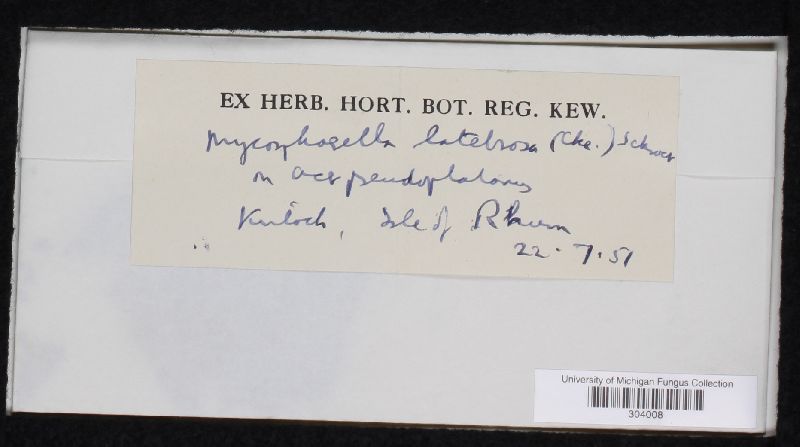 EX HERB. HORT. BOT. REG. KEW.
Mycosphaerella latebrosa (Cke.) Schroet
on acer pseudoplatanus
Kinloch, Isle of Rhum
22.7.51
University of Michigan Fungus Collection
304008